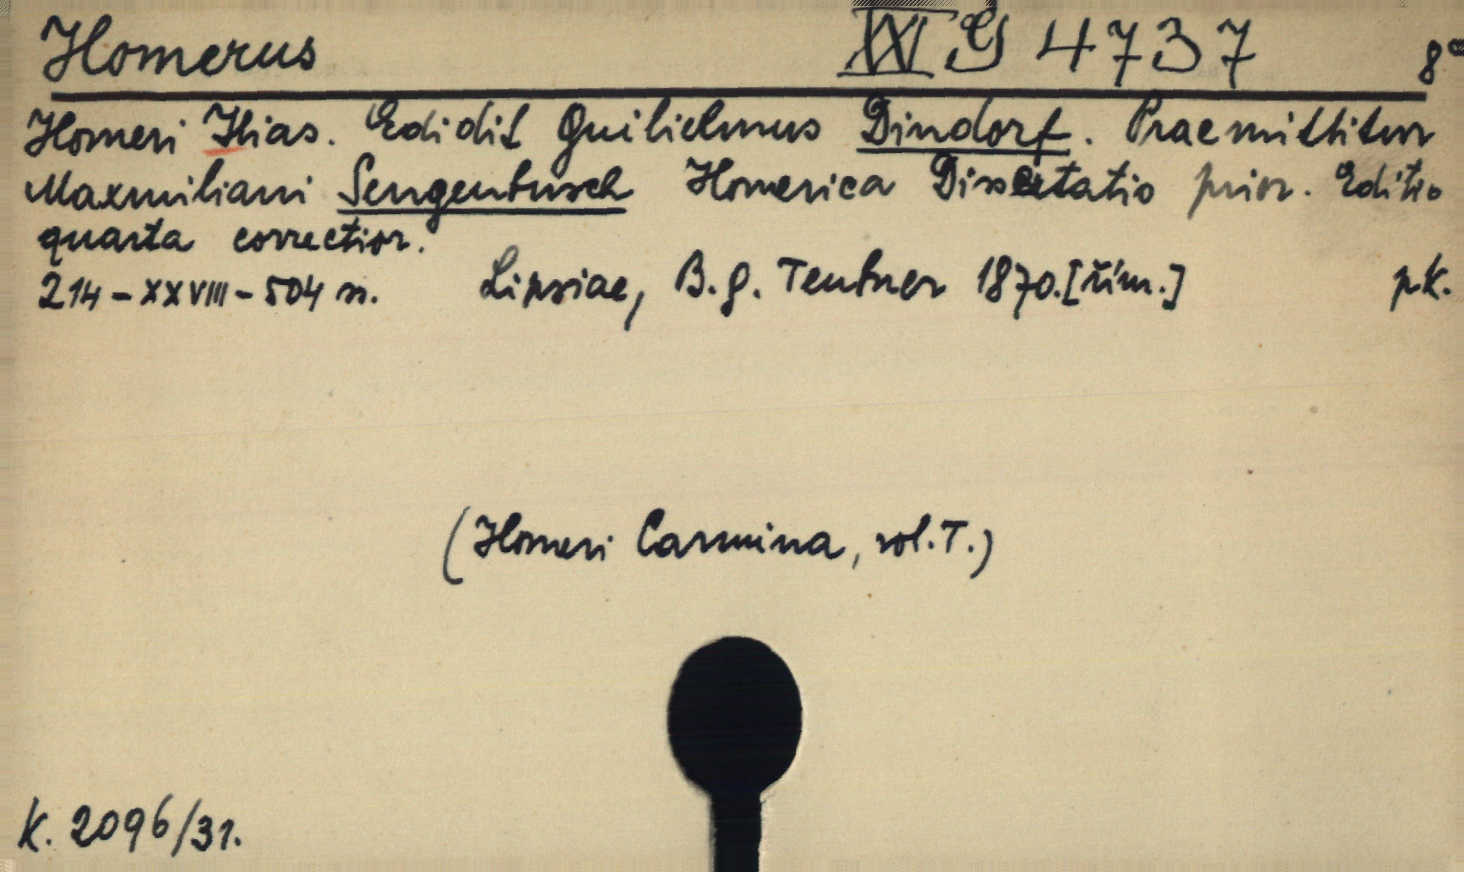 Homerus XXI G 4737 8°
Homeri Ilias. Edidit Guilielmus Dindorf. Praemittitur
Maxmiliani Sengenbusch Homerica Dissetatio prior. Editio
quarta correctior.
214-XXVIII-504 s. Lipsiae, B. G. Teubner 1870.[řím.] pk.
(Homeri Carmina, vol. I.)
K. 2096/31.